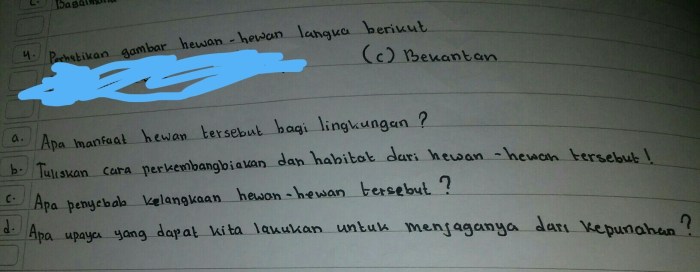 4. Perhatikan gambar hewan-hewan langka berikut
(c) Bekantan
a. Apa manfaat hewan tersebut bagi lingkungan?
b. Tuliskan cara perkembangbiakan dan habitat dari hewan-hewan tersebut!
c. Apa penyebab kelangkaan hewan-hewan tersebut?
d. Apa upaya yang dapat kita lakukan untuk menjaganya dari kepunahan?